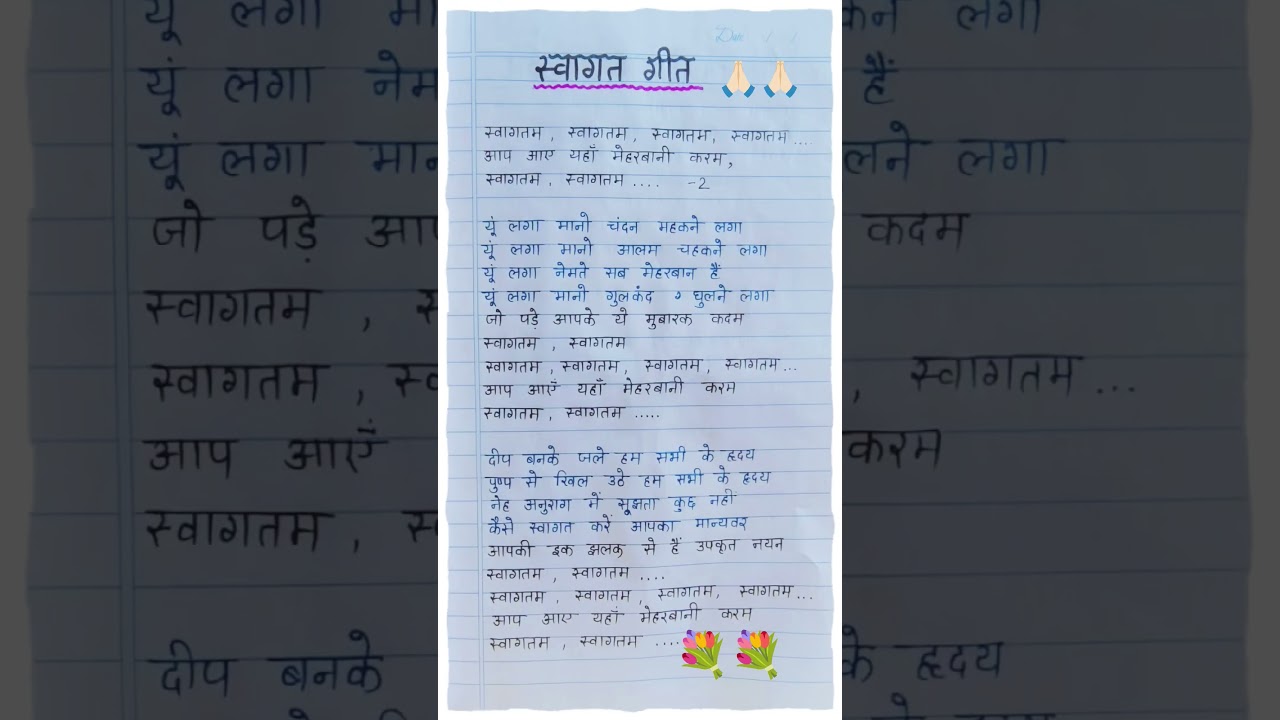 Date / /
स्वागत गीत 🙏🏻 🙏🏻
स्वागतम , स्वागतम , स्वागतम , स्वागतम ...
आप आए यहाँ मेहरबानी करम ,
स्वागतम , स्वागतम .... -2
यूं लगा मानो चंदन महकने लगा
यूं लगा मानो आलम चहकने लगा
यूं लगा नेमते सब मेहरबान हैं
यूं लगा मानो गुलकंद घुलने लगा
जो पड़े आपके ये मुबारक कदम
स्वागतम , स्वागतम
स्वागतम , स्वागतम , स्वागतम , स्वागतम ...
आप आएँ यहाँ मेहरबानी करम
स्वागतम , स्वागतम .....
दीप बनके जले हम सभी के हृदय
पुष्प से खिल उठे हम सभी के हृदय
नेह अनुराग में सूझता कुछ नही
कैसे स्वागत करें आपका मान्यवर
आपकी इक झलक से हैं उपकृत नयन
स्वागतम , स्वागतम ....
स्वागतम , स्वागतम , स्वागतम , स्वागतम ...
आप आए यहाँ मेहरबानी करम
स्वागतम , स्वागतम .... 💐 💐